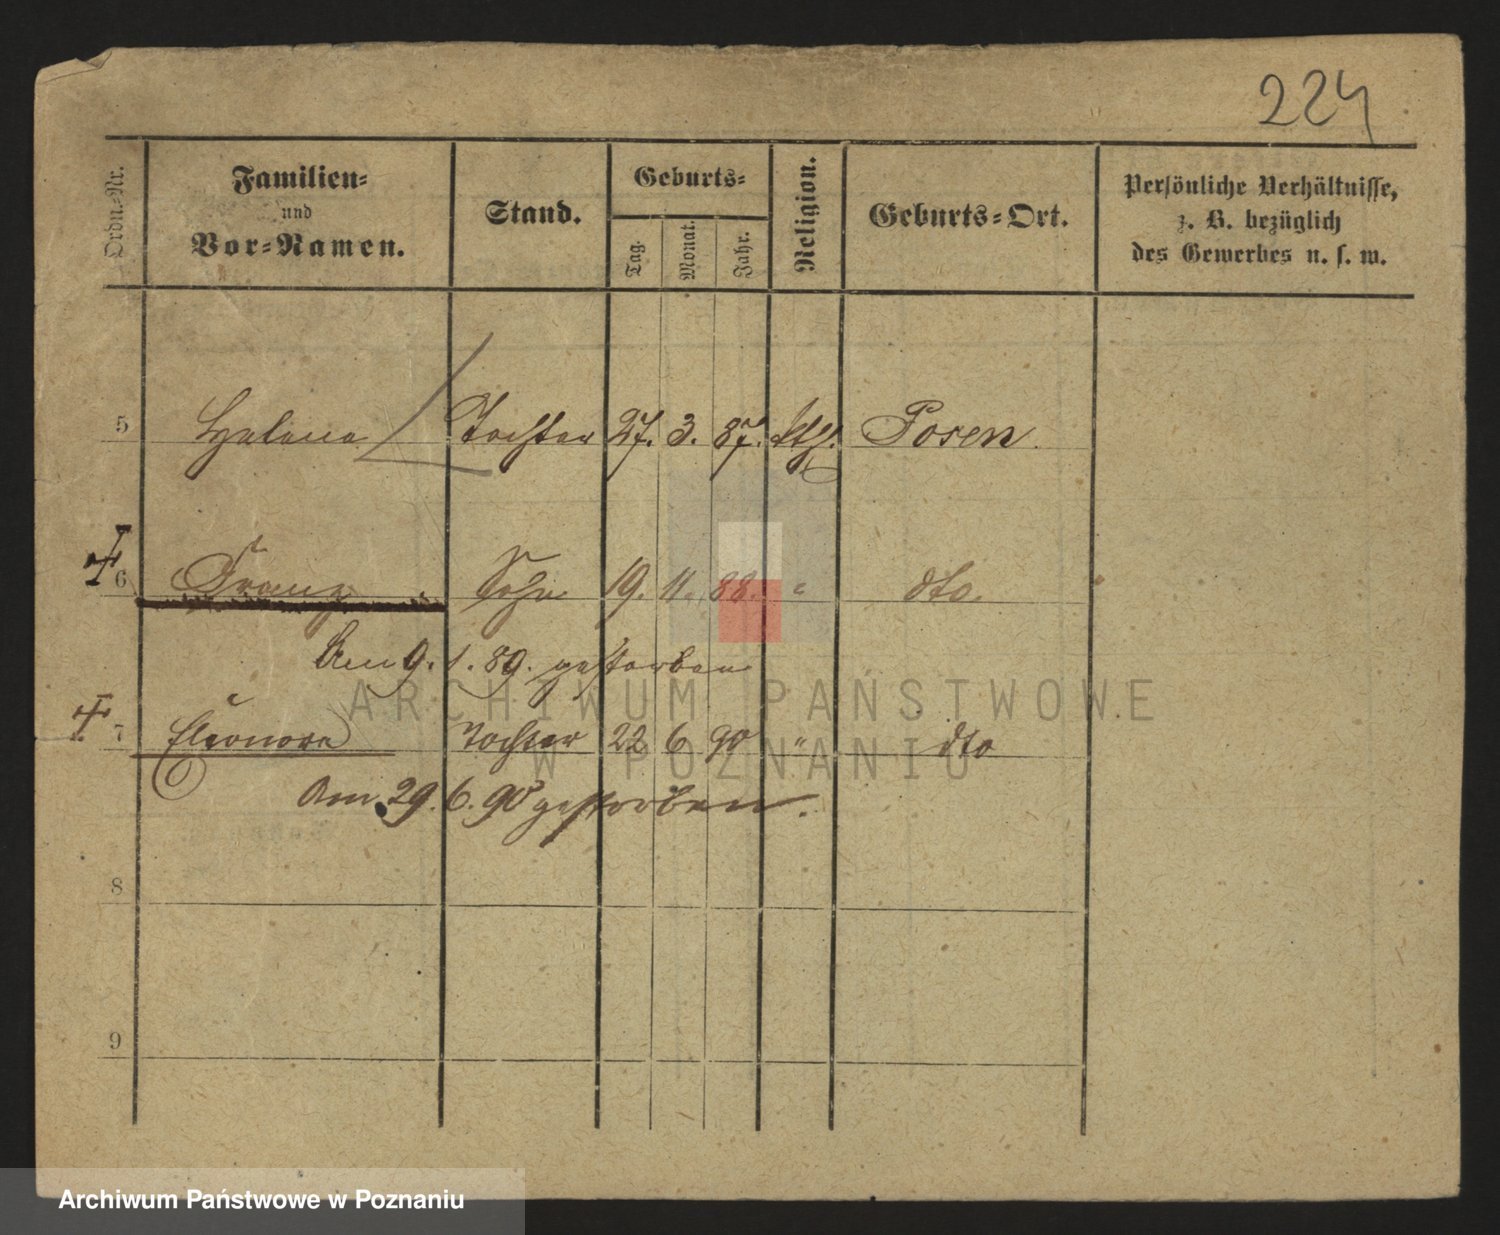 224
Ordn.-Nr.
Familien-
und
Vor-Namen.
Stand.
Geburts-
Tag.
Monat.
Jahr.
Religion.
Geburts-Ort.
Persönliche Verhältnisse,
z. B. bezüglich
des Gewerbes u. s. w.
5 Helena Tochter 27. 3. 87. kth. Posen.
6 Franz Sohn 19. 11. 88. " dto.
Am 9. 1. 89. gestorben
7 Eleonora Tochter 22 6 90 " dto
Am 29. 6. 90 gestorben.
8
9
ARCHIWUM PAŃSTWOWE
W POZNANIU
Archiwum Państwowe w Poznaniu